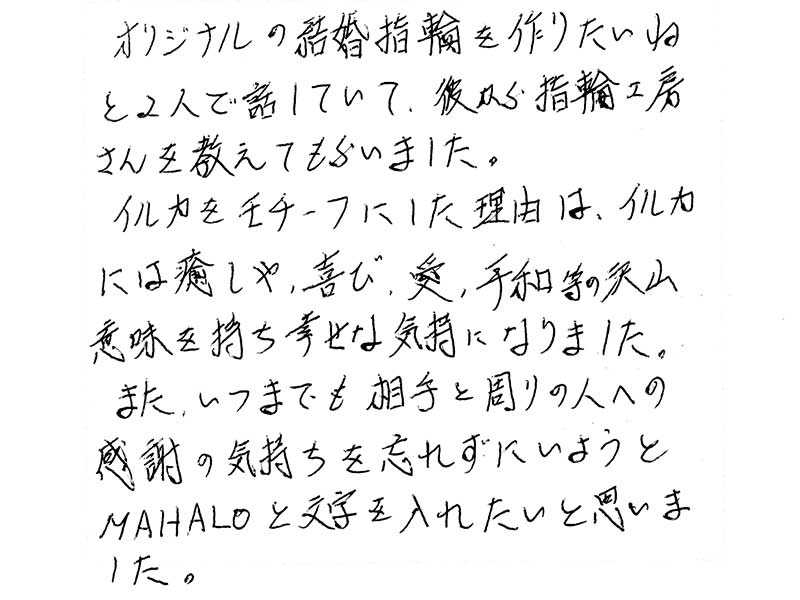 オリジナルの結婚指輪を作りたいね
と2人で話していて、彼から指輪工房
さんを教えてもらいました。
イルカをモチーフにした理由は、イルカ
には癒しや、喜び、愛、平和等の沢山
意味を持ち幸せな気持になりました。
また、いつまでも相手と周りの人への
感謝の気持ちを忘れずにいようと
MAHALOと文字を入れたいと思いま
した。